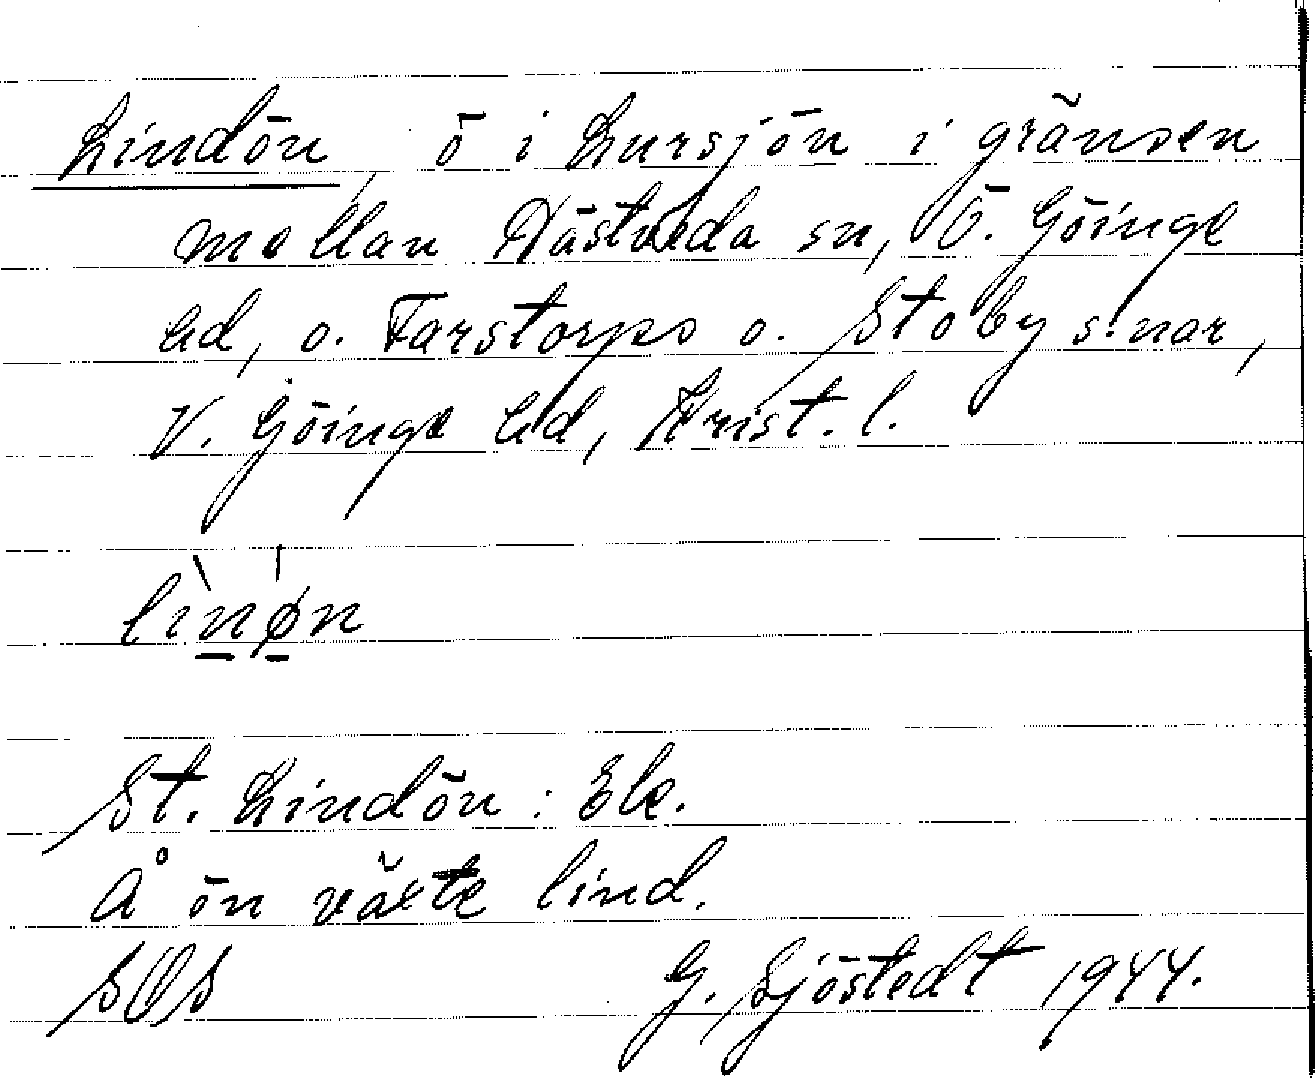 Lindön, ö i Lursjön i gränsen
mellan Nästveda sn, Ö. Göinge
hd, o. Farstorps o. Stoby s:nar,
V. Göinge hd, Krist. l.
lìnøn
St. Lindön: Ek.
Å ön växte lind.
SOS G. Sjöstedt 1944.